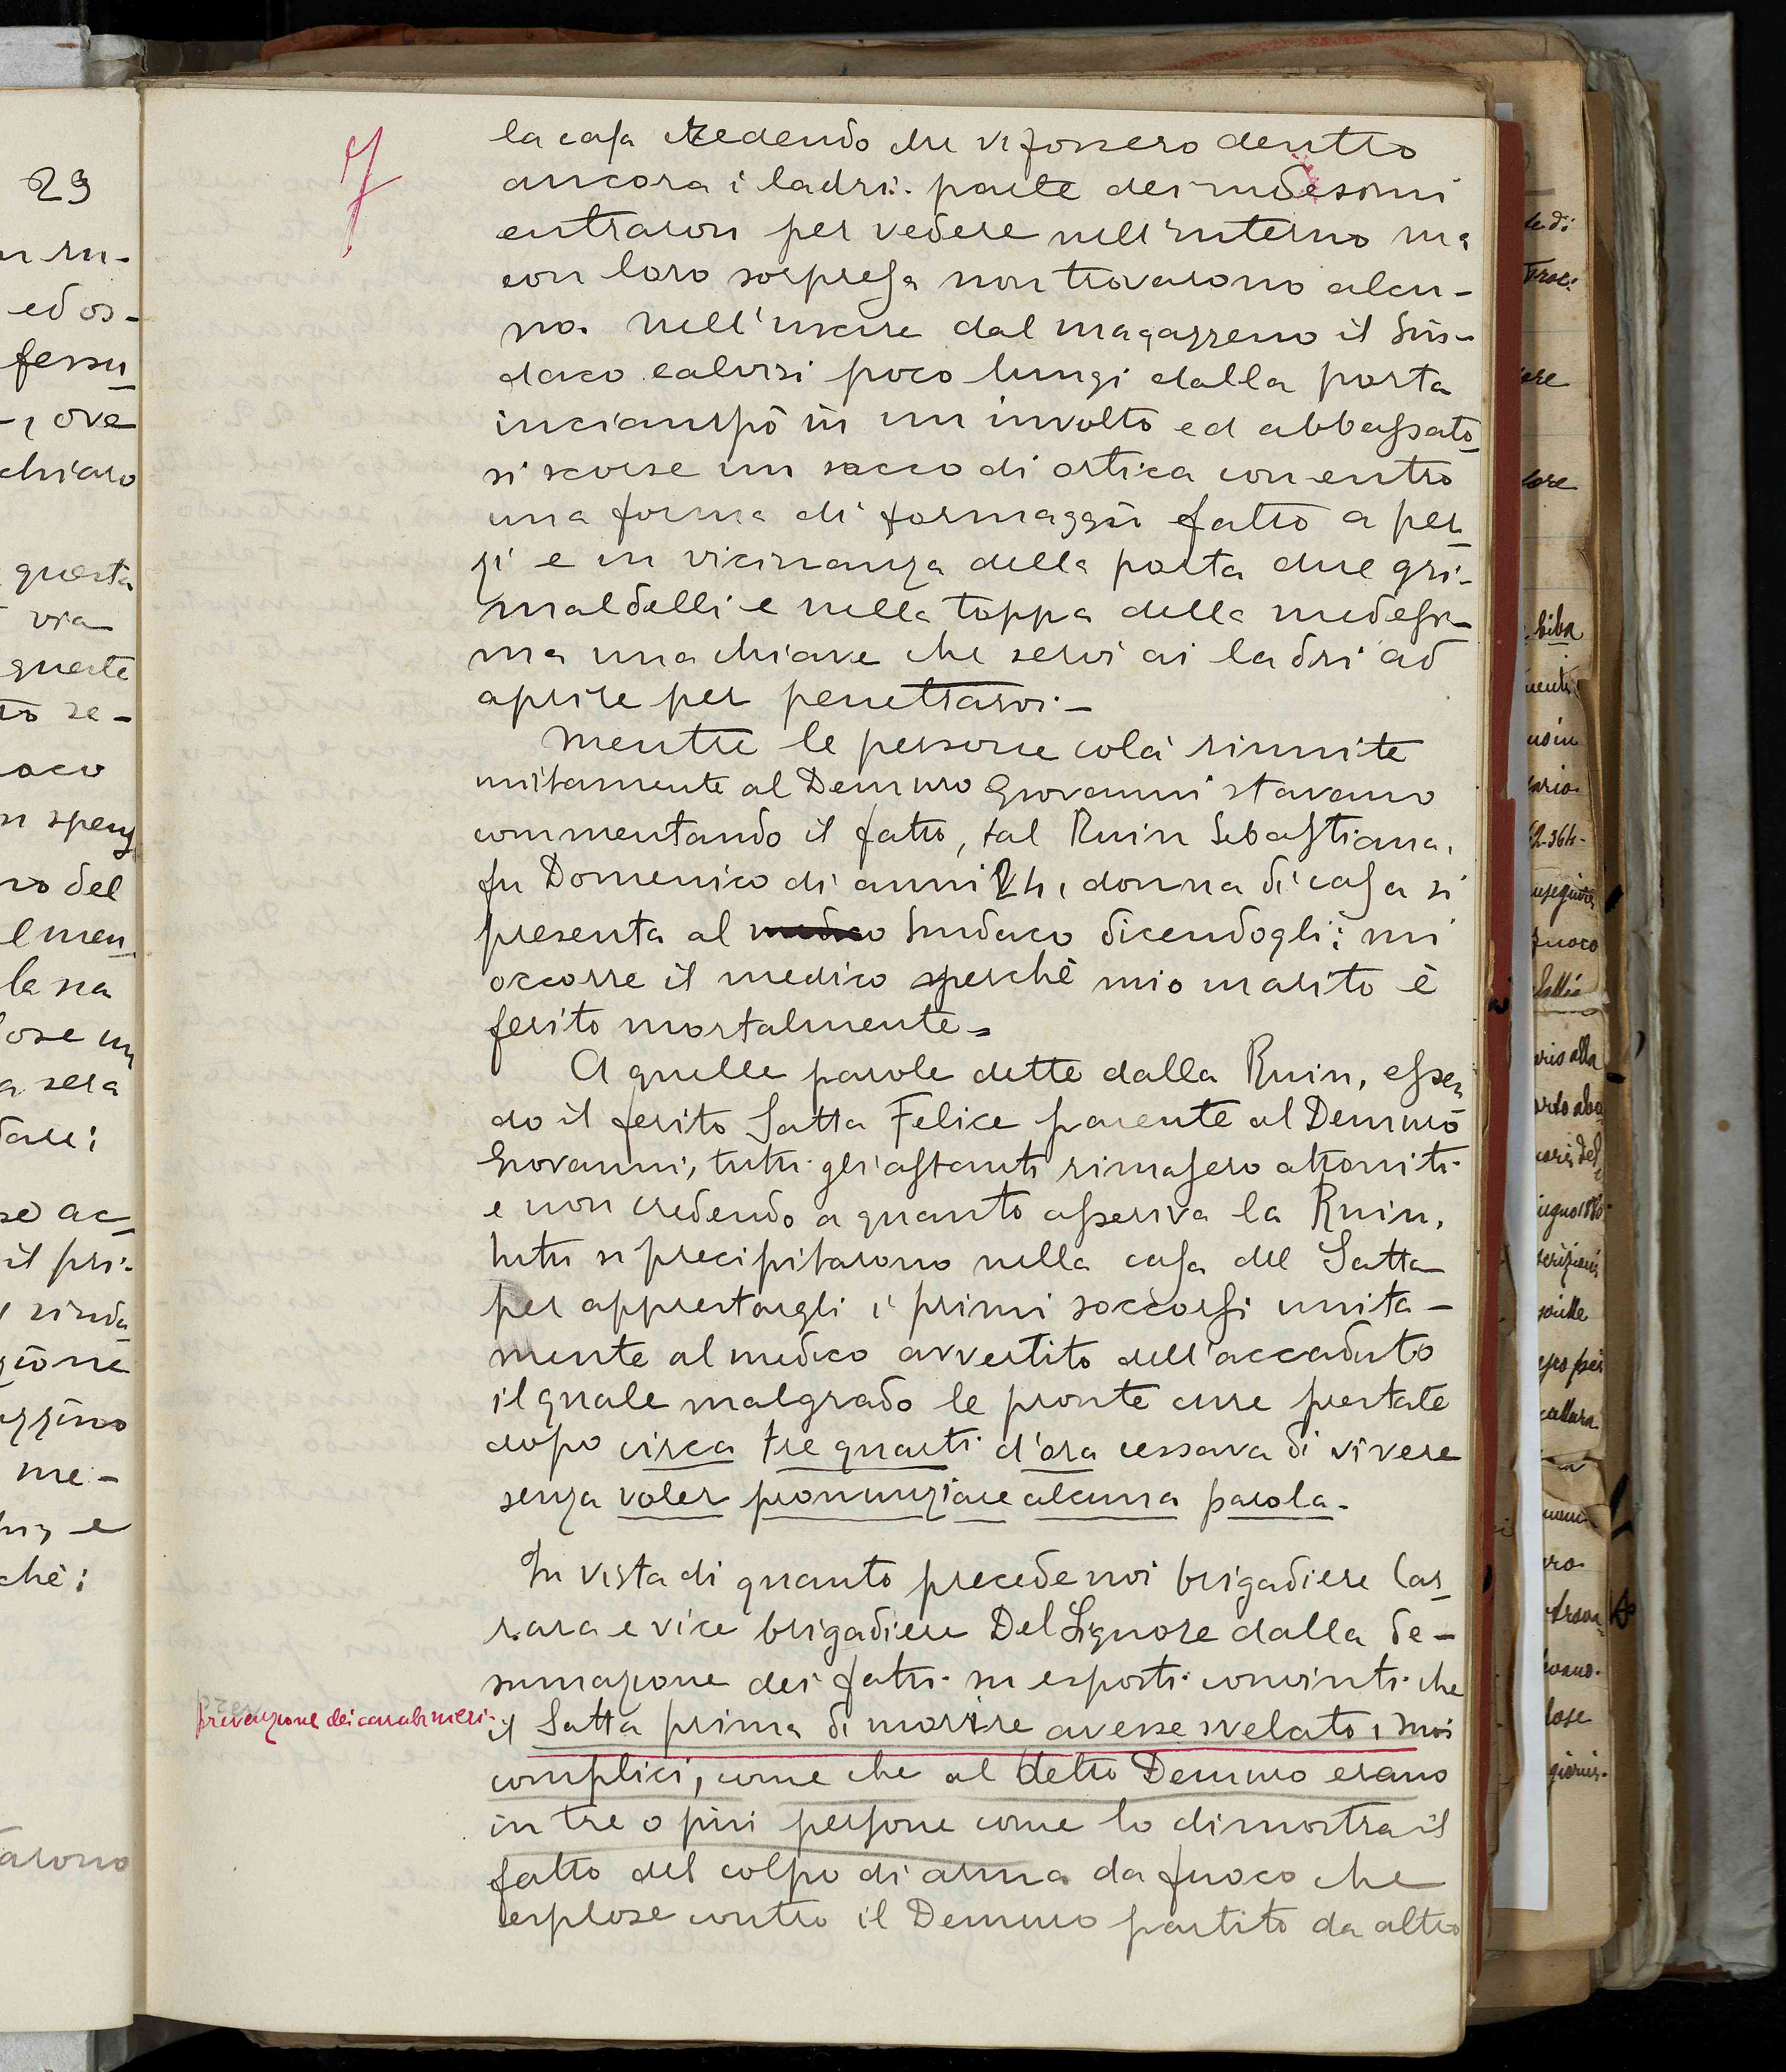 29
n ru-
ed os-
fessu
-, ove
chiaro
questa
via
queste
to se-
n speng
ro del
el men
la sua
lose un
a sera
dare:
se ac-
il pri-
sinda
zione
azzino
me-
chè:
arono
7
la casa credendo che vi fossero dentro
ancora i ladri. parte dei medesimi
entraron per vedere nell'interno ma
con loro sorpresa non trovarono alcu-
no. Nell'uscire dal magazzeno il Sin-
daco Calvisi poco lungi dalla porta
inciampò in un involto ed abbassato
si scorse un sacco di ortica con entro
una forma di formaggio fatto a pez
zi e in vicinanza della porta due gri-
maldelli e nella toppa della medesi-
ma una chiave che servì ai ladri ad
aprire per penetrarvi-
Mentre le persone colà riunite
unitamente al Demuro Giovanni stavano
commentando il fatto, tal Ruin Sebastiana,
fu Domenico di anni 24, donna di casa si
presenta al medico Sindaco dicendogli: mi
occorre il medico perchè mio marito è
ferito mortalmente-
A quelle parole dette dalla Ruin, essen
do il ferito Satta Felice parente al Demuro
Giovanni, tutti gli astanti rimasero attoniti
e non credendo a quanto asseriva la Ruin,
tutti si precipitarono nella casa del Satta
per apprestargli i primi soccorsi unita-
mente al medico avvertito dell'accaduto
il quale malgrado le pronte cure prestate
dopo circa tre quarti d'ora cessava di vivere
senza voler pronunziare alcuna parola-
In vista di quanto precede noi brigadiere Car
rara e vice brigadiere Del Signore dalla de-
sumazione dei fatti su esposti convinti che
prevenzione dei carabinieri-
il Satta prima di morire avesse svelato i suoi
complici, come che al detto Demuro erano
in tre o più persone come lo dimostra il
fatto del colpo di arma da fuoco che
esplose contro il Demuro partito da altro